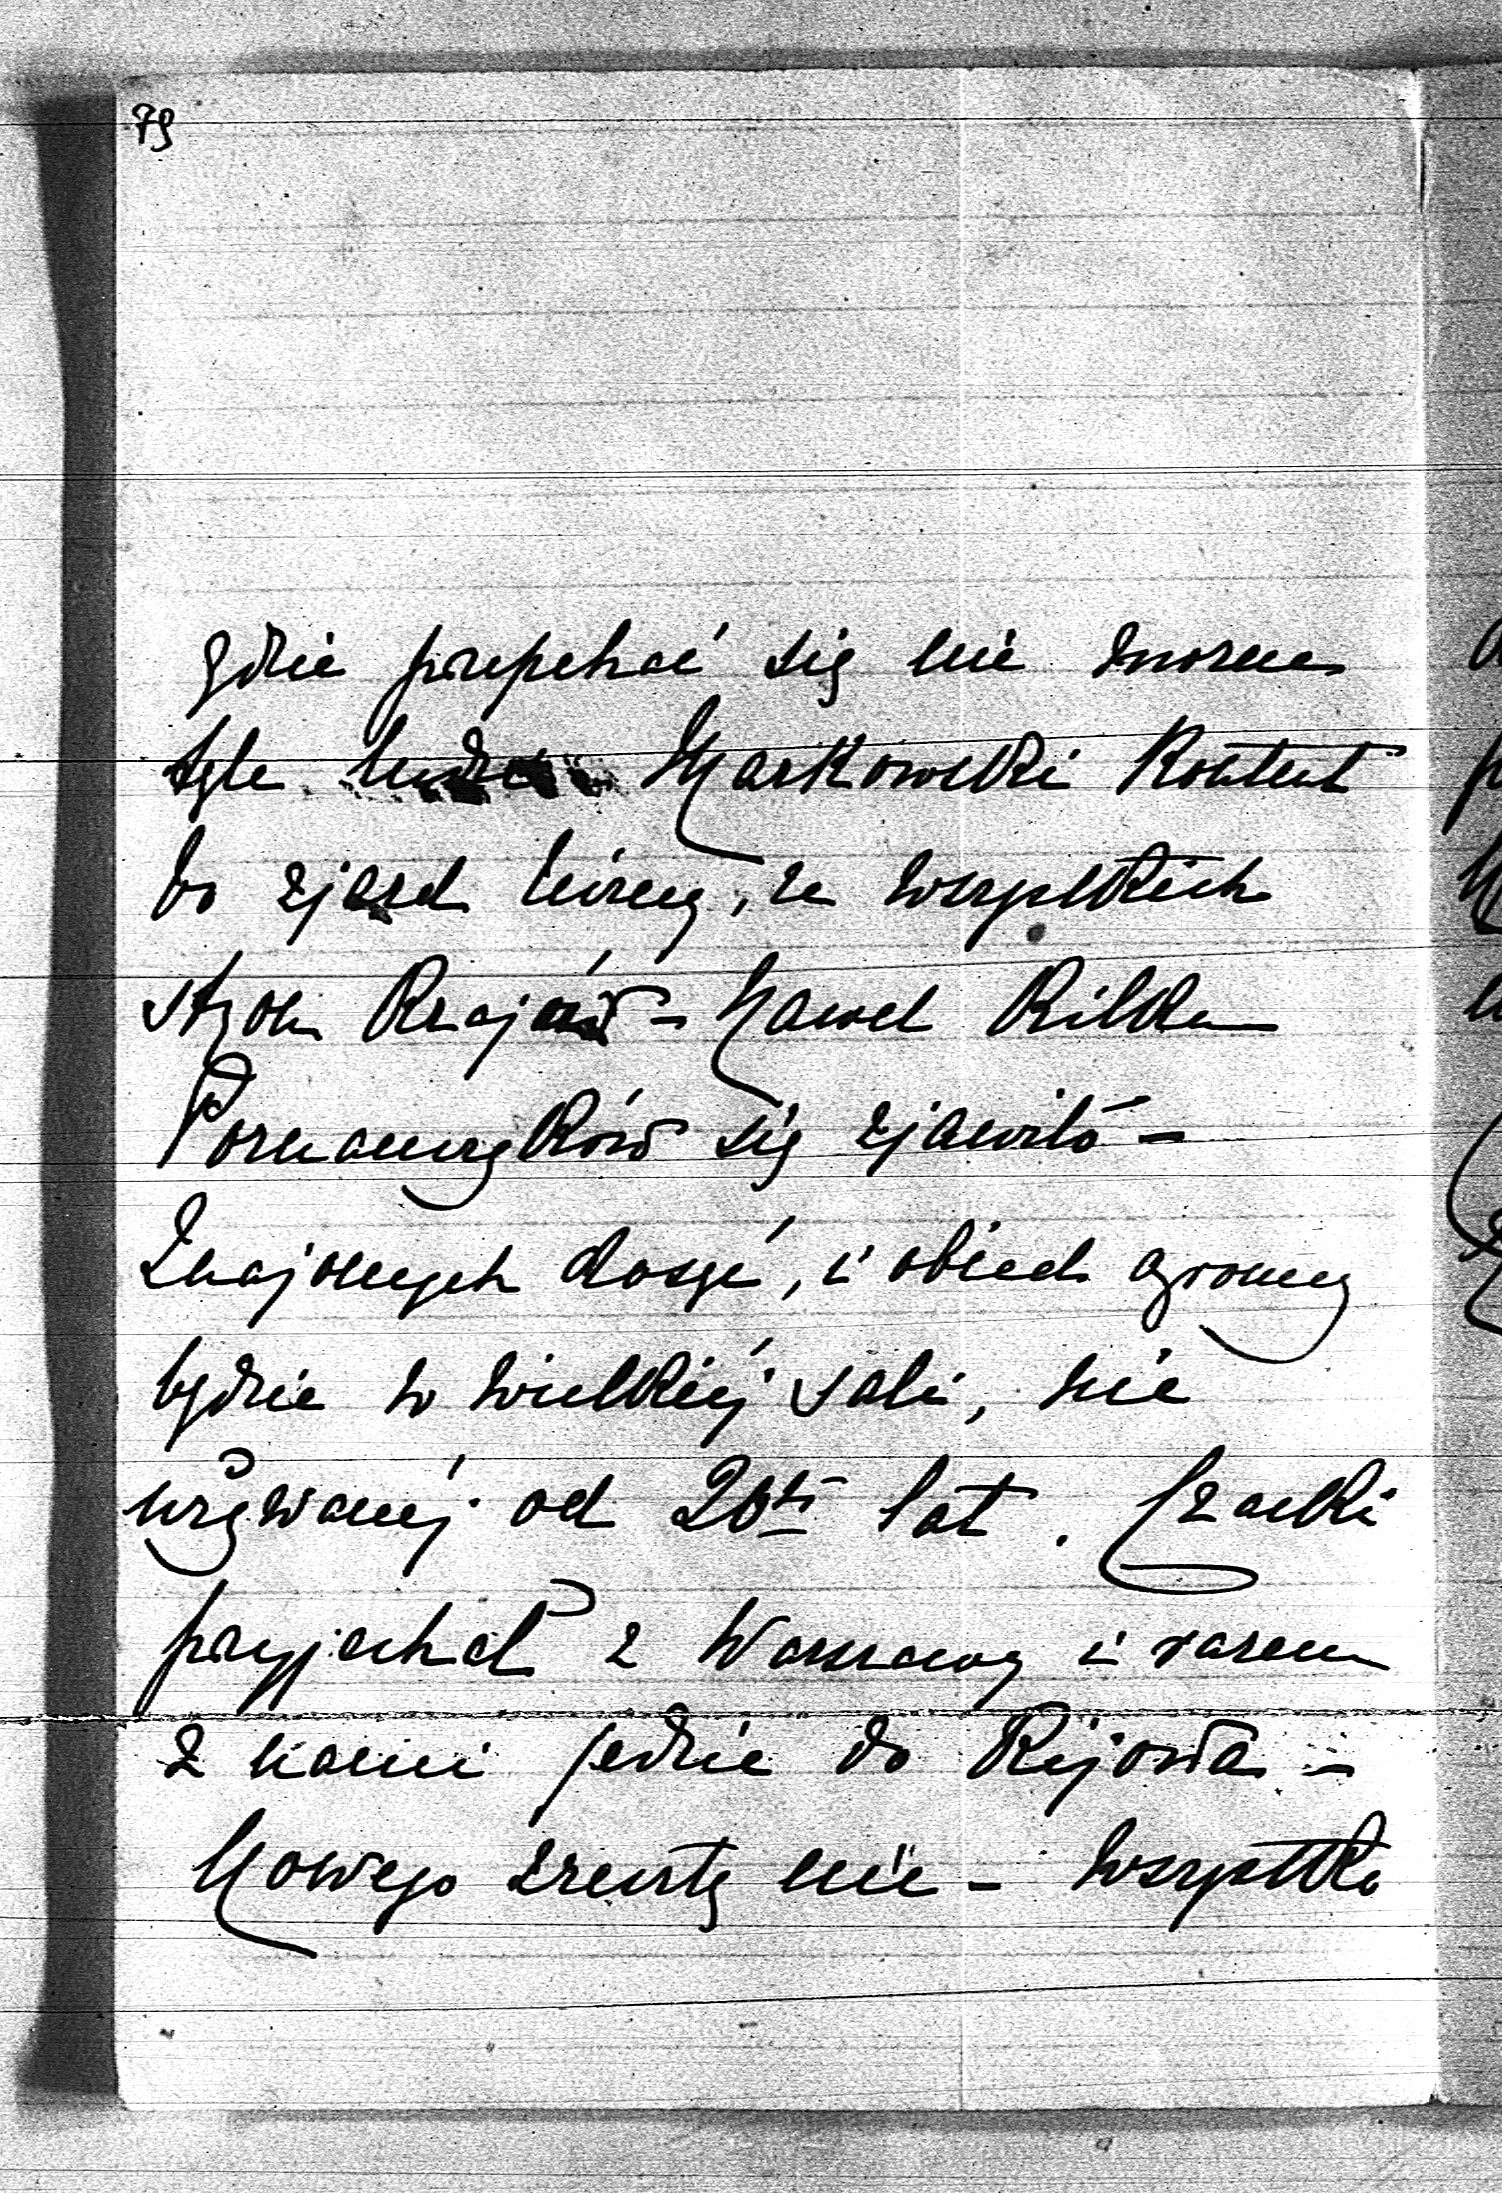 79
gdzie przepchać się nie można
tyle ludzi Markowski kontent
bo zjazd liczny, ze wszystkich
stron Krajów - Nawet kilku
Poznańczyków się zjawiło -
Znajomych dosyć, i obiad ogromny
będzie w wielkiéj sali, nie
używanéj od 20tu lat. Czacki
przyjechał z Warszawy i razem
z nami jedzie do Kijowa -
Nowego zresztą nic - Wszystko